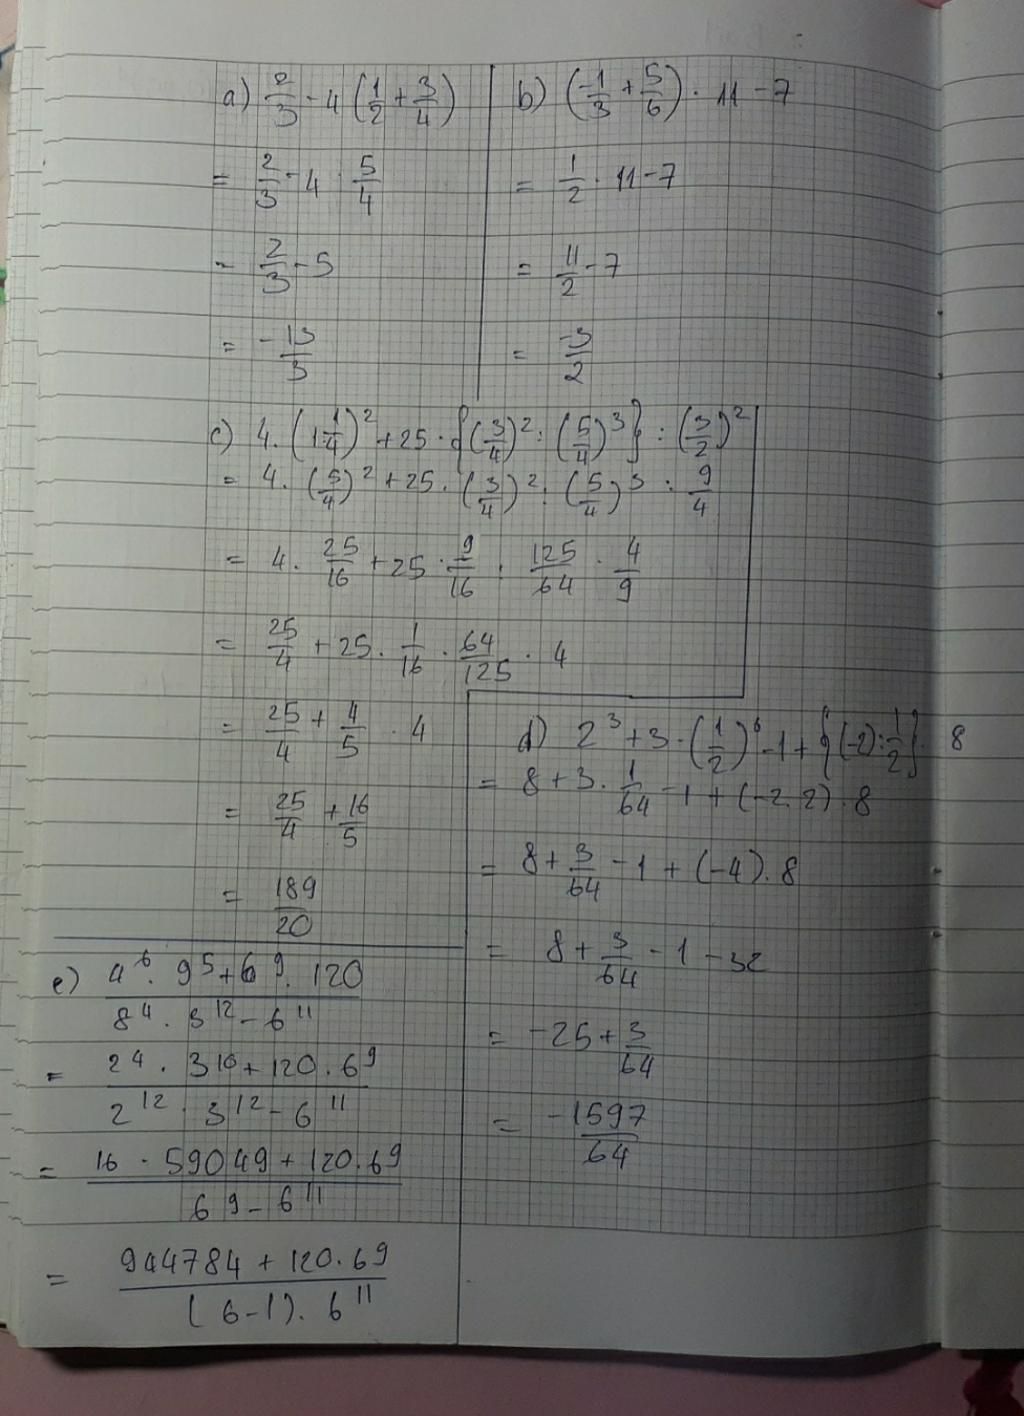 a) 2/3 - 4 (1/2 + 3/4)
= 2/3 - 4 · 5/4
= 2/3 - 5
= -13/3
b) (-1/3 + 5/6) · 11 - 7
= 1/2 · 11 - 7
= 11/2 - 7
= -3/2
c) 4 · (1 1/4)² + 25 · {(3/4)² : (5/4)³} : (3/2)²
= 4 · (5/4)² + 25 · (3/4)² : (5/4)³ : 9/4
= 4 · 25/16 + 25 · 9/16 : 125/64 · 4/9
= 25/4 + 25 · 1/16 · 64/125 · 4
= 25/4 + 4/5 · 4
= 25/4 + 16/5
= 189/20
d) 2³ + 3 · (1/2)⁶ - 1 + {(-2) : 1/2} · 8
= 8 + 3 · 1/64 - 1 + (-2.2) · 8
= 8 + 3/64 - 1 + (-4) . 8
= 8 + 3/64 - 1 - 32
= -25 + 3/64
= -1597/64
e) 4⁶ · 9⁵ + 6⁹ · 120 / 8⁴ · 3¹² - 6¹¹
= 2⁴ · 3¹⁰ + 120 . 6⁹ / 2¹² · 3¹² - 6¹¹
= 16 · 59049 + 120 . 69 / 69 - 6¹¹
= 944784 + 120 . 69 / (6 - 1) . 6¹¹